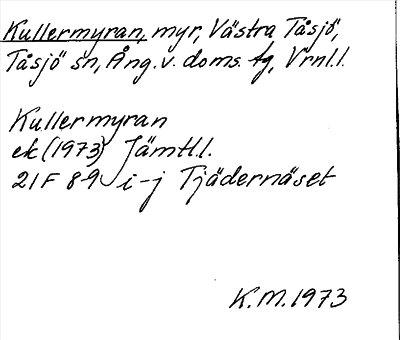 Kullermyran, myr, Västra Tåsjö,
Tåsjö sn, Ång. v. doms. tg, Vrnl.l.
Kullermyran
ek (1973) Jämtl.l.
21F 8-9 i-j Tjädernäset
K.M. 1973